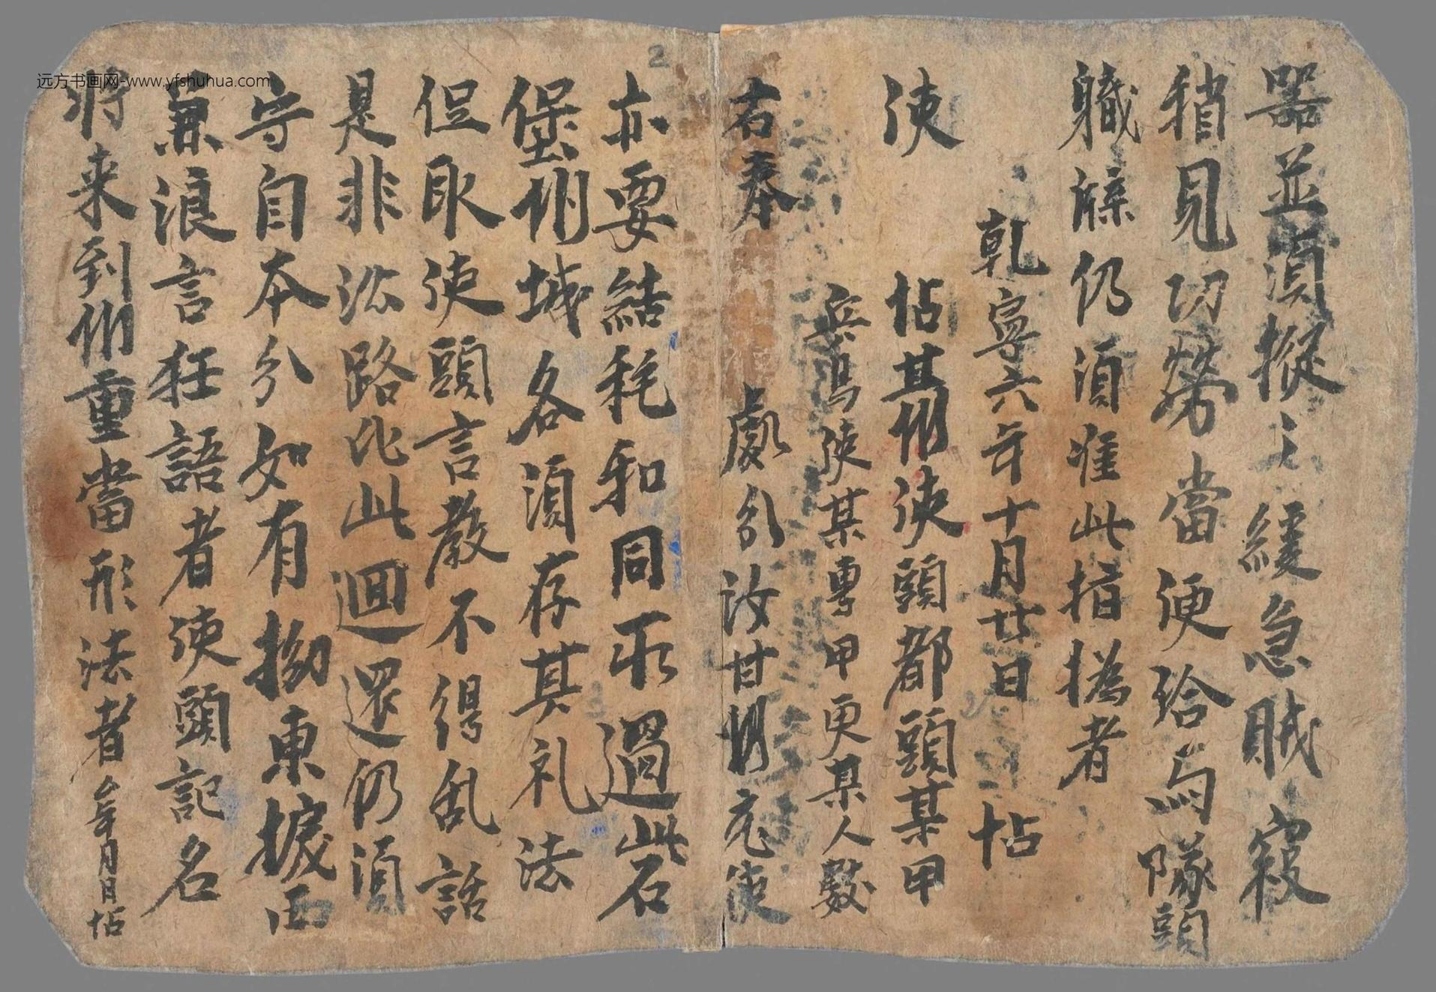 器並須摐之緩急賊寇
稍見功勞當便給与隊頭
軄牒仍須准此指撝者
乾寧六年十月廿日 帖
使 帖某州使頭都頭某甲
兵馬使某專甲更某人數
右奉 處分汝甘州充使
亦要結耗和同不過此石
堡州城各須存其礼法
但取使頭言教不得乱話
是非沿路比此迴還仍須
守自本分如有拗東捩西
兼浪言狂語者使頭記名
将来到州重當形法者 年月日帖
2
远方书画网-www.yfshuhua.com